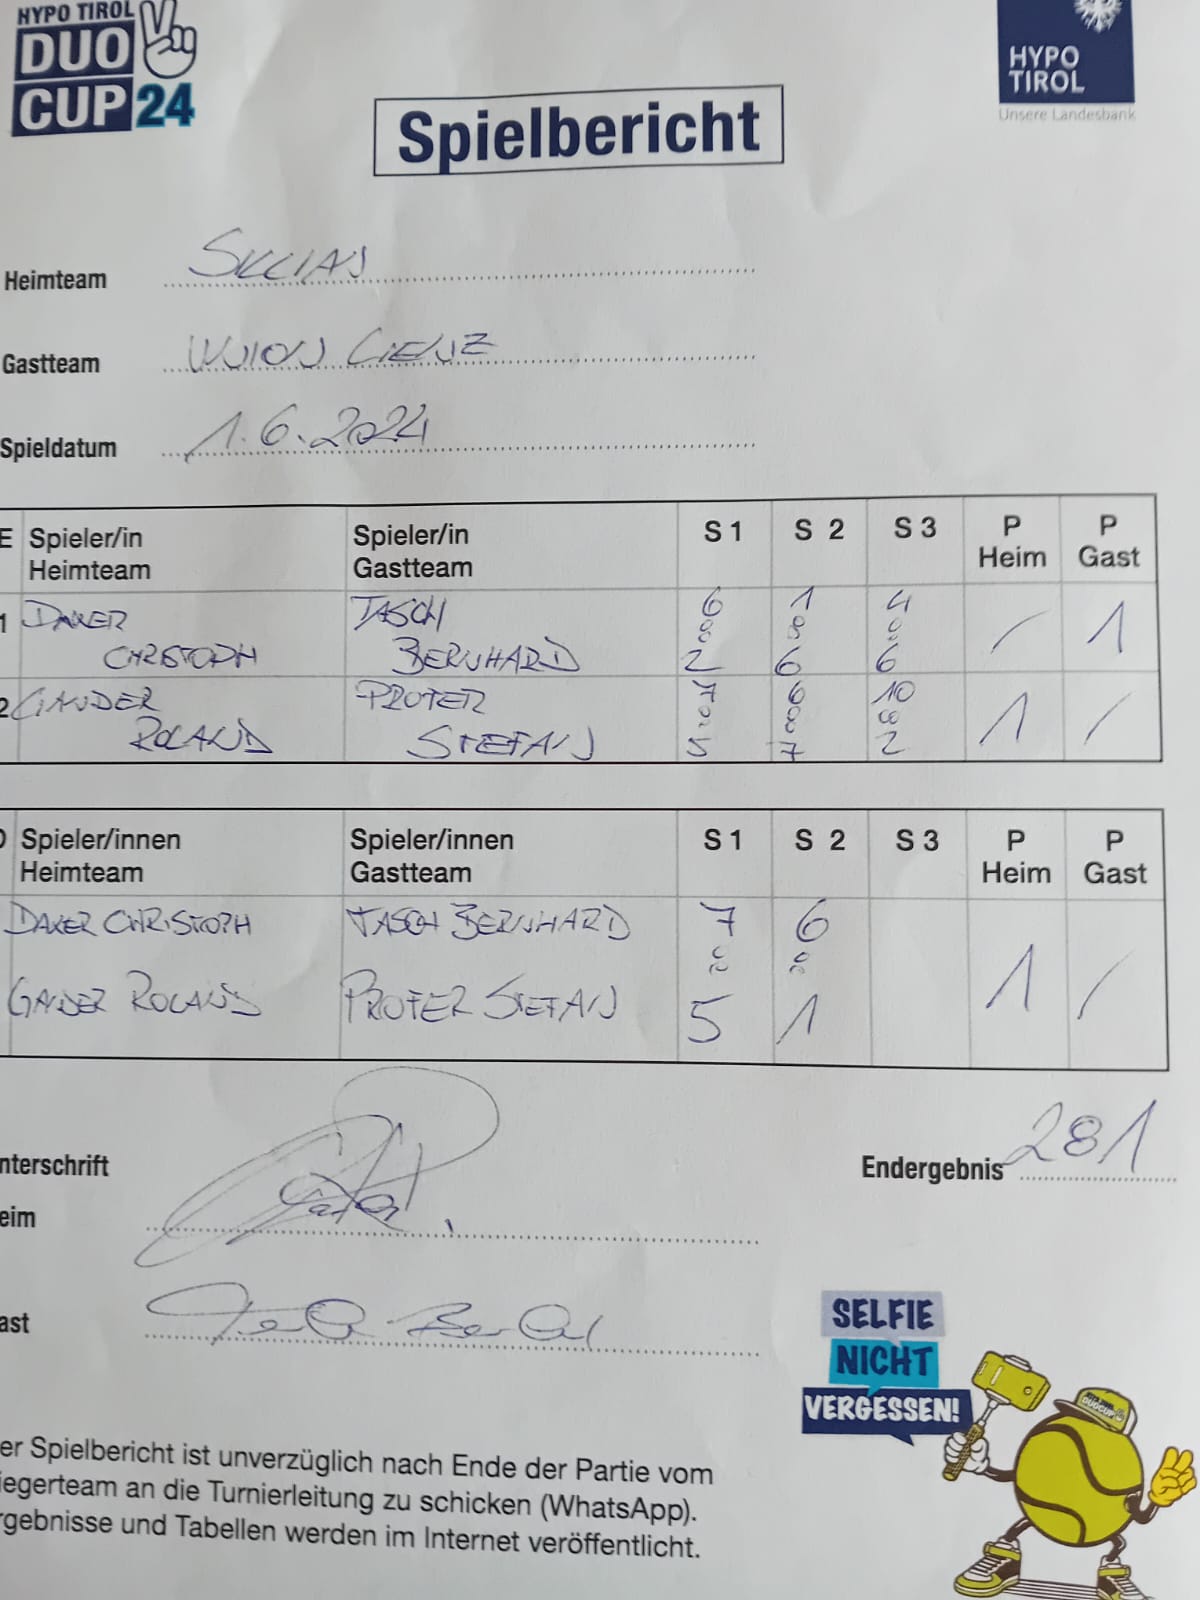 HYPO TIROL
DUO
CUP 24
HYPO
TIROL
Unsere Landesbank
Spielbericht
Heimteam SILLIAN
Gastteam UNION LIENZ
Spieldatum 1.6.2024
E Spieler/in Spieler/in S 1 S 2 S 3 P P
Heimteam Gastteam Heim Gast
1 DAXER TASCH 6 1 4
: : : / 1
CHRISTOPH BERNHARD 2 6 6
2 GANDER PROFER 7 6 10
: : : 1 /
ROLAND STEFAN 5 7 2
Spieler/innen Spieler/innen S 1 S 2 S 3 P P
Heimteam Gastteam Heim Gast
DAXER CHRISTOPH TASCH BERNHARD 7 6
: : 1 /
GANDER ROLAND PROFER STEFAN 5 1
nterschrift Endergebnis 2:1
eim
ast
SELFIE
NICHT
VERGESSEN!
DUOCUP
er Spielbericht ist unverzüglich nach Ende der Partie vom
iegerteam an die Turnierleitung zu schicken (WhatsApp).
rgebnisse und Tabellen werden im Internet veröffentlicht.